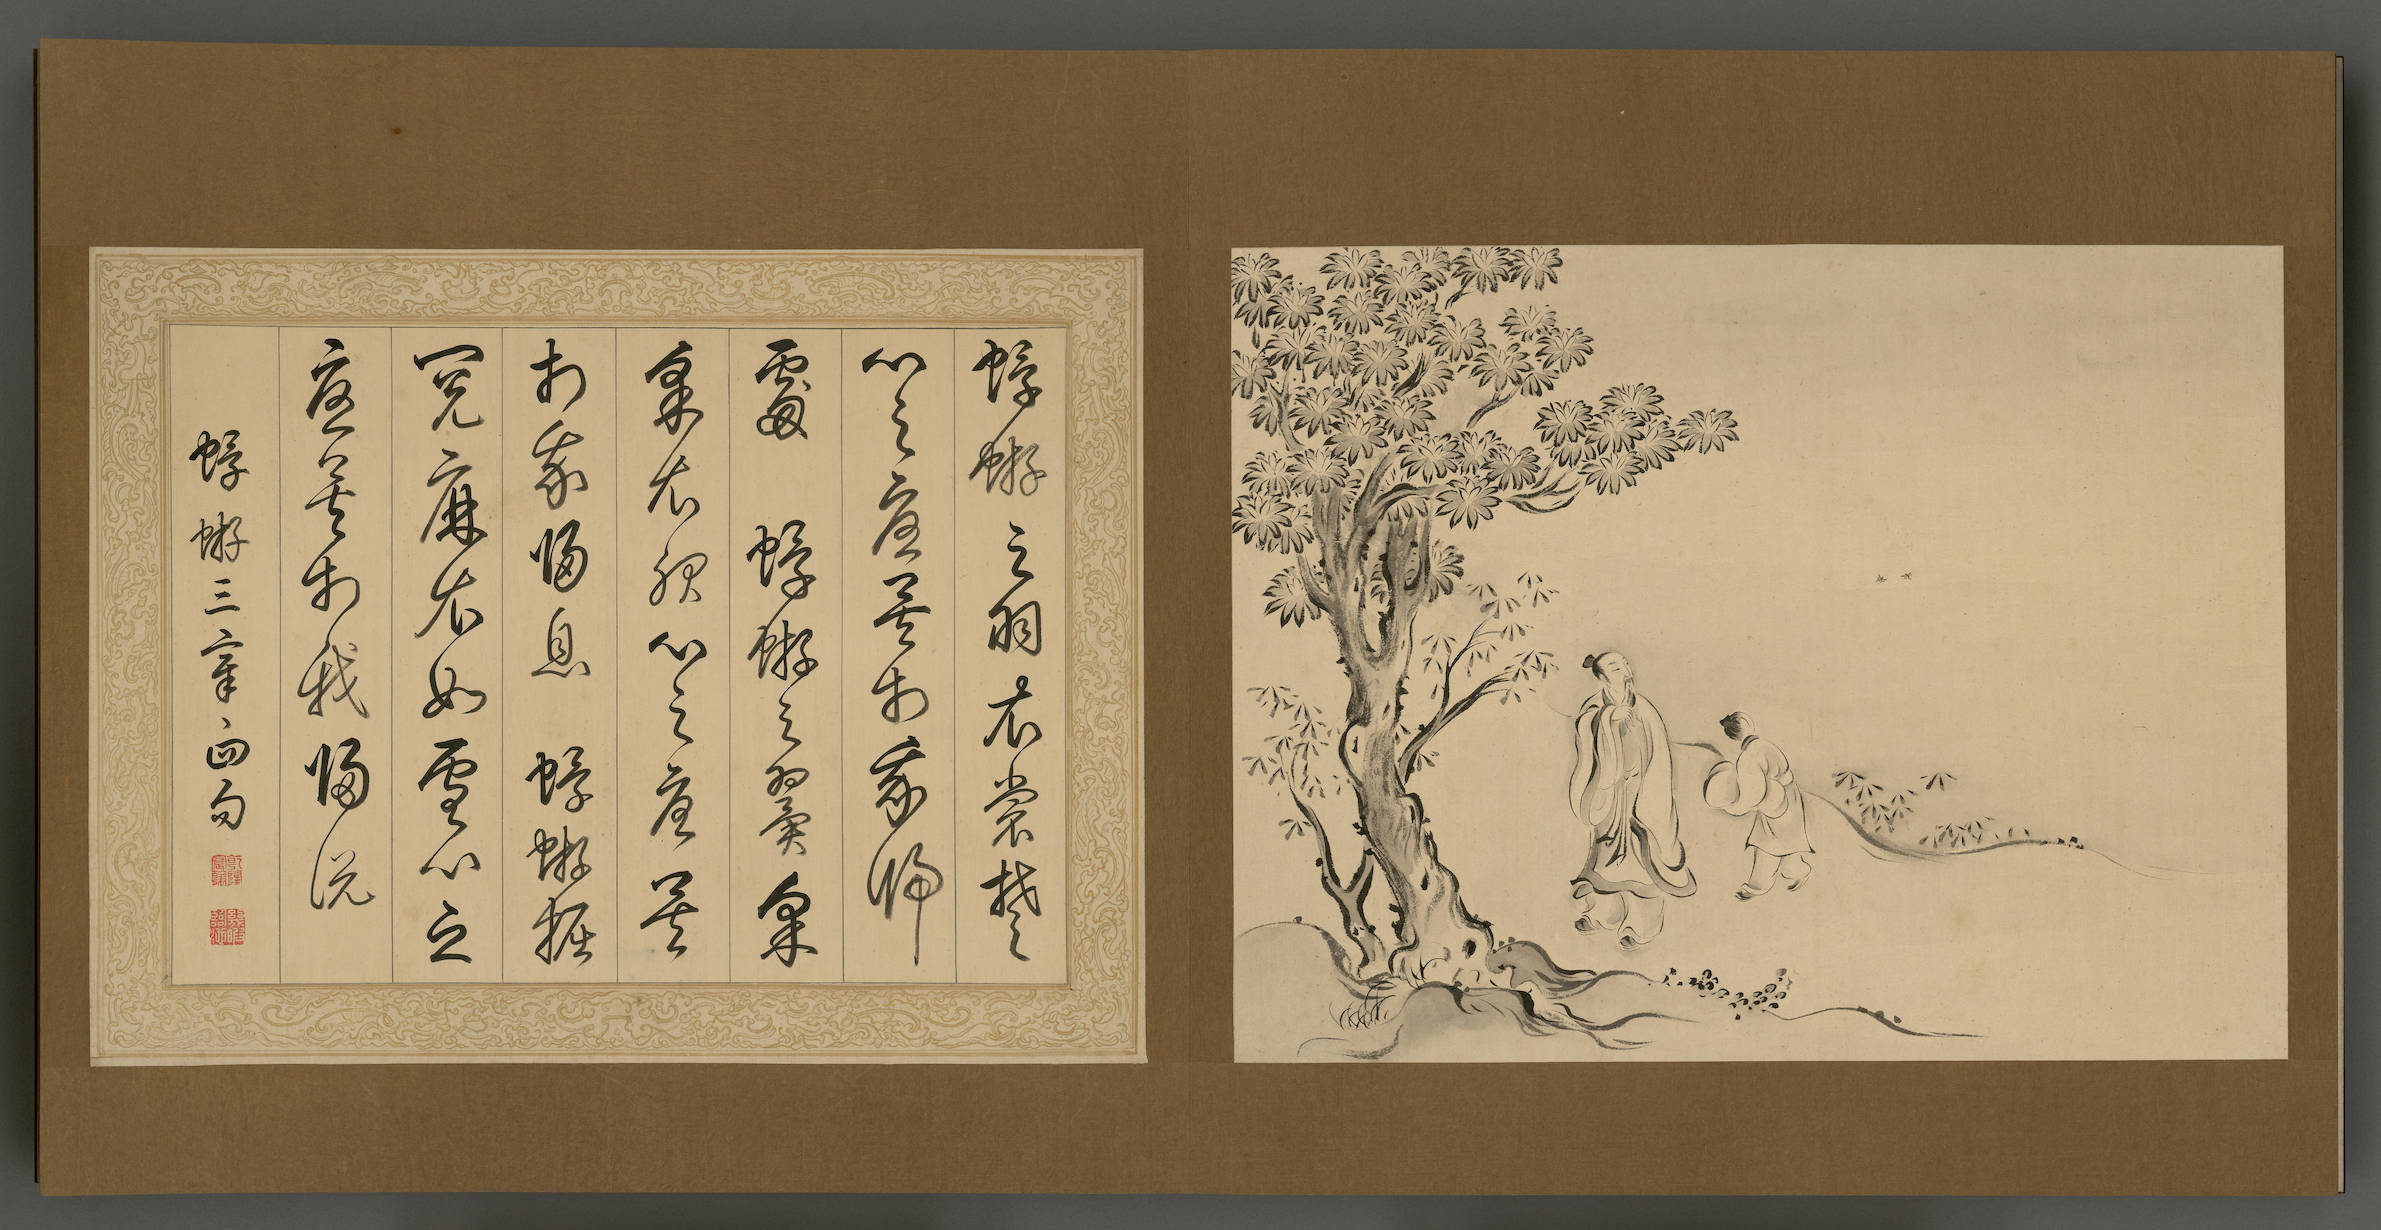 蜉蝣之羽衣裳楚〻
心之憂矣於我歸
處 蜉蝣之翼采
采衣服心之憂矣
於我歸息 蜉蝣掘
閱麻衣如雪心之
憂矣於我歸說
蜉蝣三章〻四句
乾隆宸翰